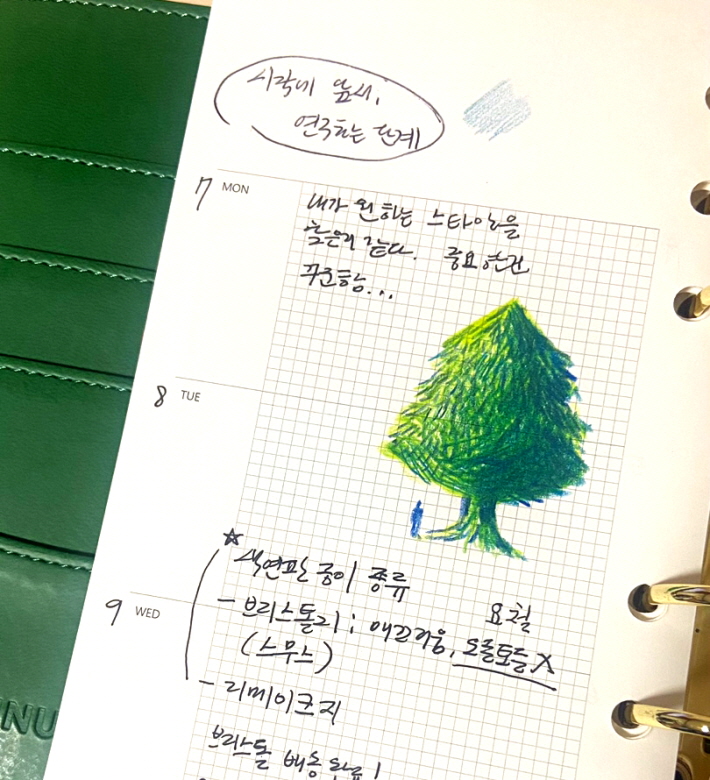 시작에 앞서,
연구하는 단계
7 MON
내가 원하는 스타일을
찾은거 같다. 중요한건
꾸준함...
8 TUE
☆ 색연필 종이 종류
요철
9 WED
- 브리스톨지 : 매끄러움, 오돌토돌 X
(스무스)
- 리메이크지
브리스톨 배송 완료!
NU